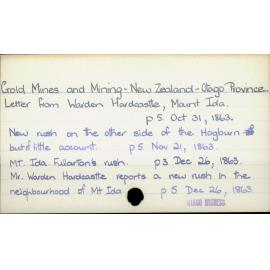 Gold Mines and Mining - New Zealand - Otago Province.
Letter from Warden Hardcastle, Mount Ida.
p 5 Oct 31, 1863.
New rush on the other side of the Hogburn
but little account. p 5 Nov 21, 1863.
MT. Ida. Fullarton's rush. p 3 Dec 26, 1863.
Mr. Warden Hardcastle reports a new rush in the
neighbourhood of Mt Ida. p 5 Dec 26, 1863
OTAGO WITNESS